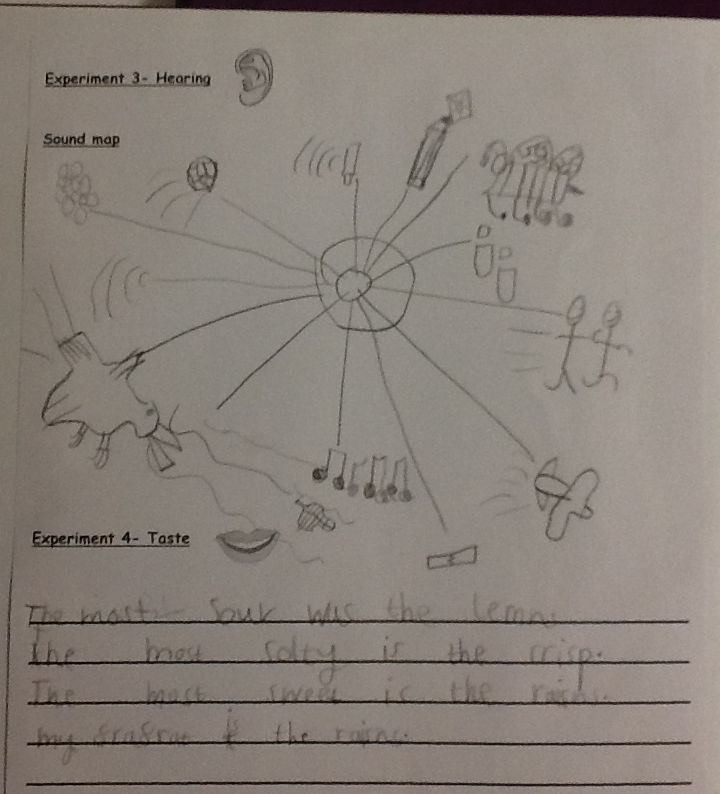 Experiment 3- Hearing
Sound map
Experiment 4- Taste
The most sour was the lemn.
The most solty is the crisp.
The most sweet is the rains.
my frafrae is the rains.